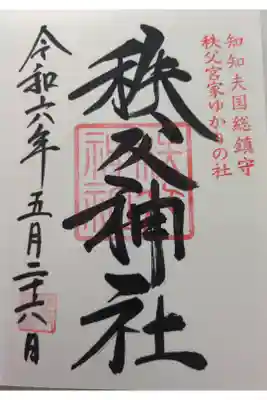 知知夫国総鎮守
秩父宮家ゆかりの社
秩父神社
令和六年五月二十六日